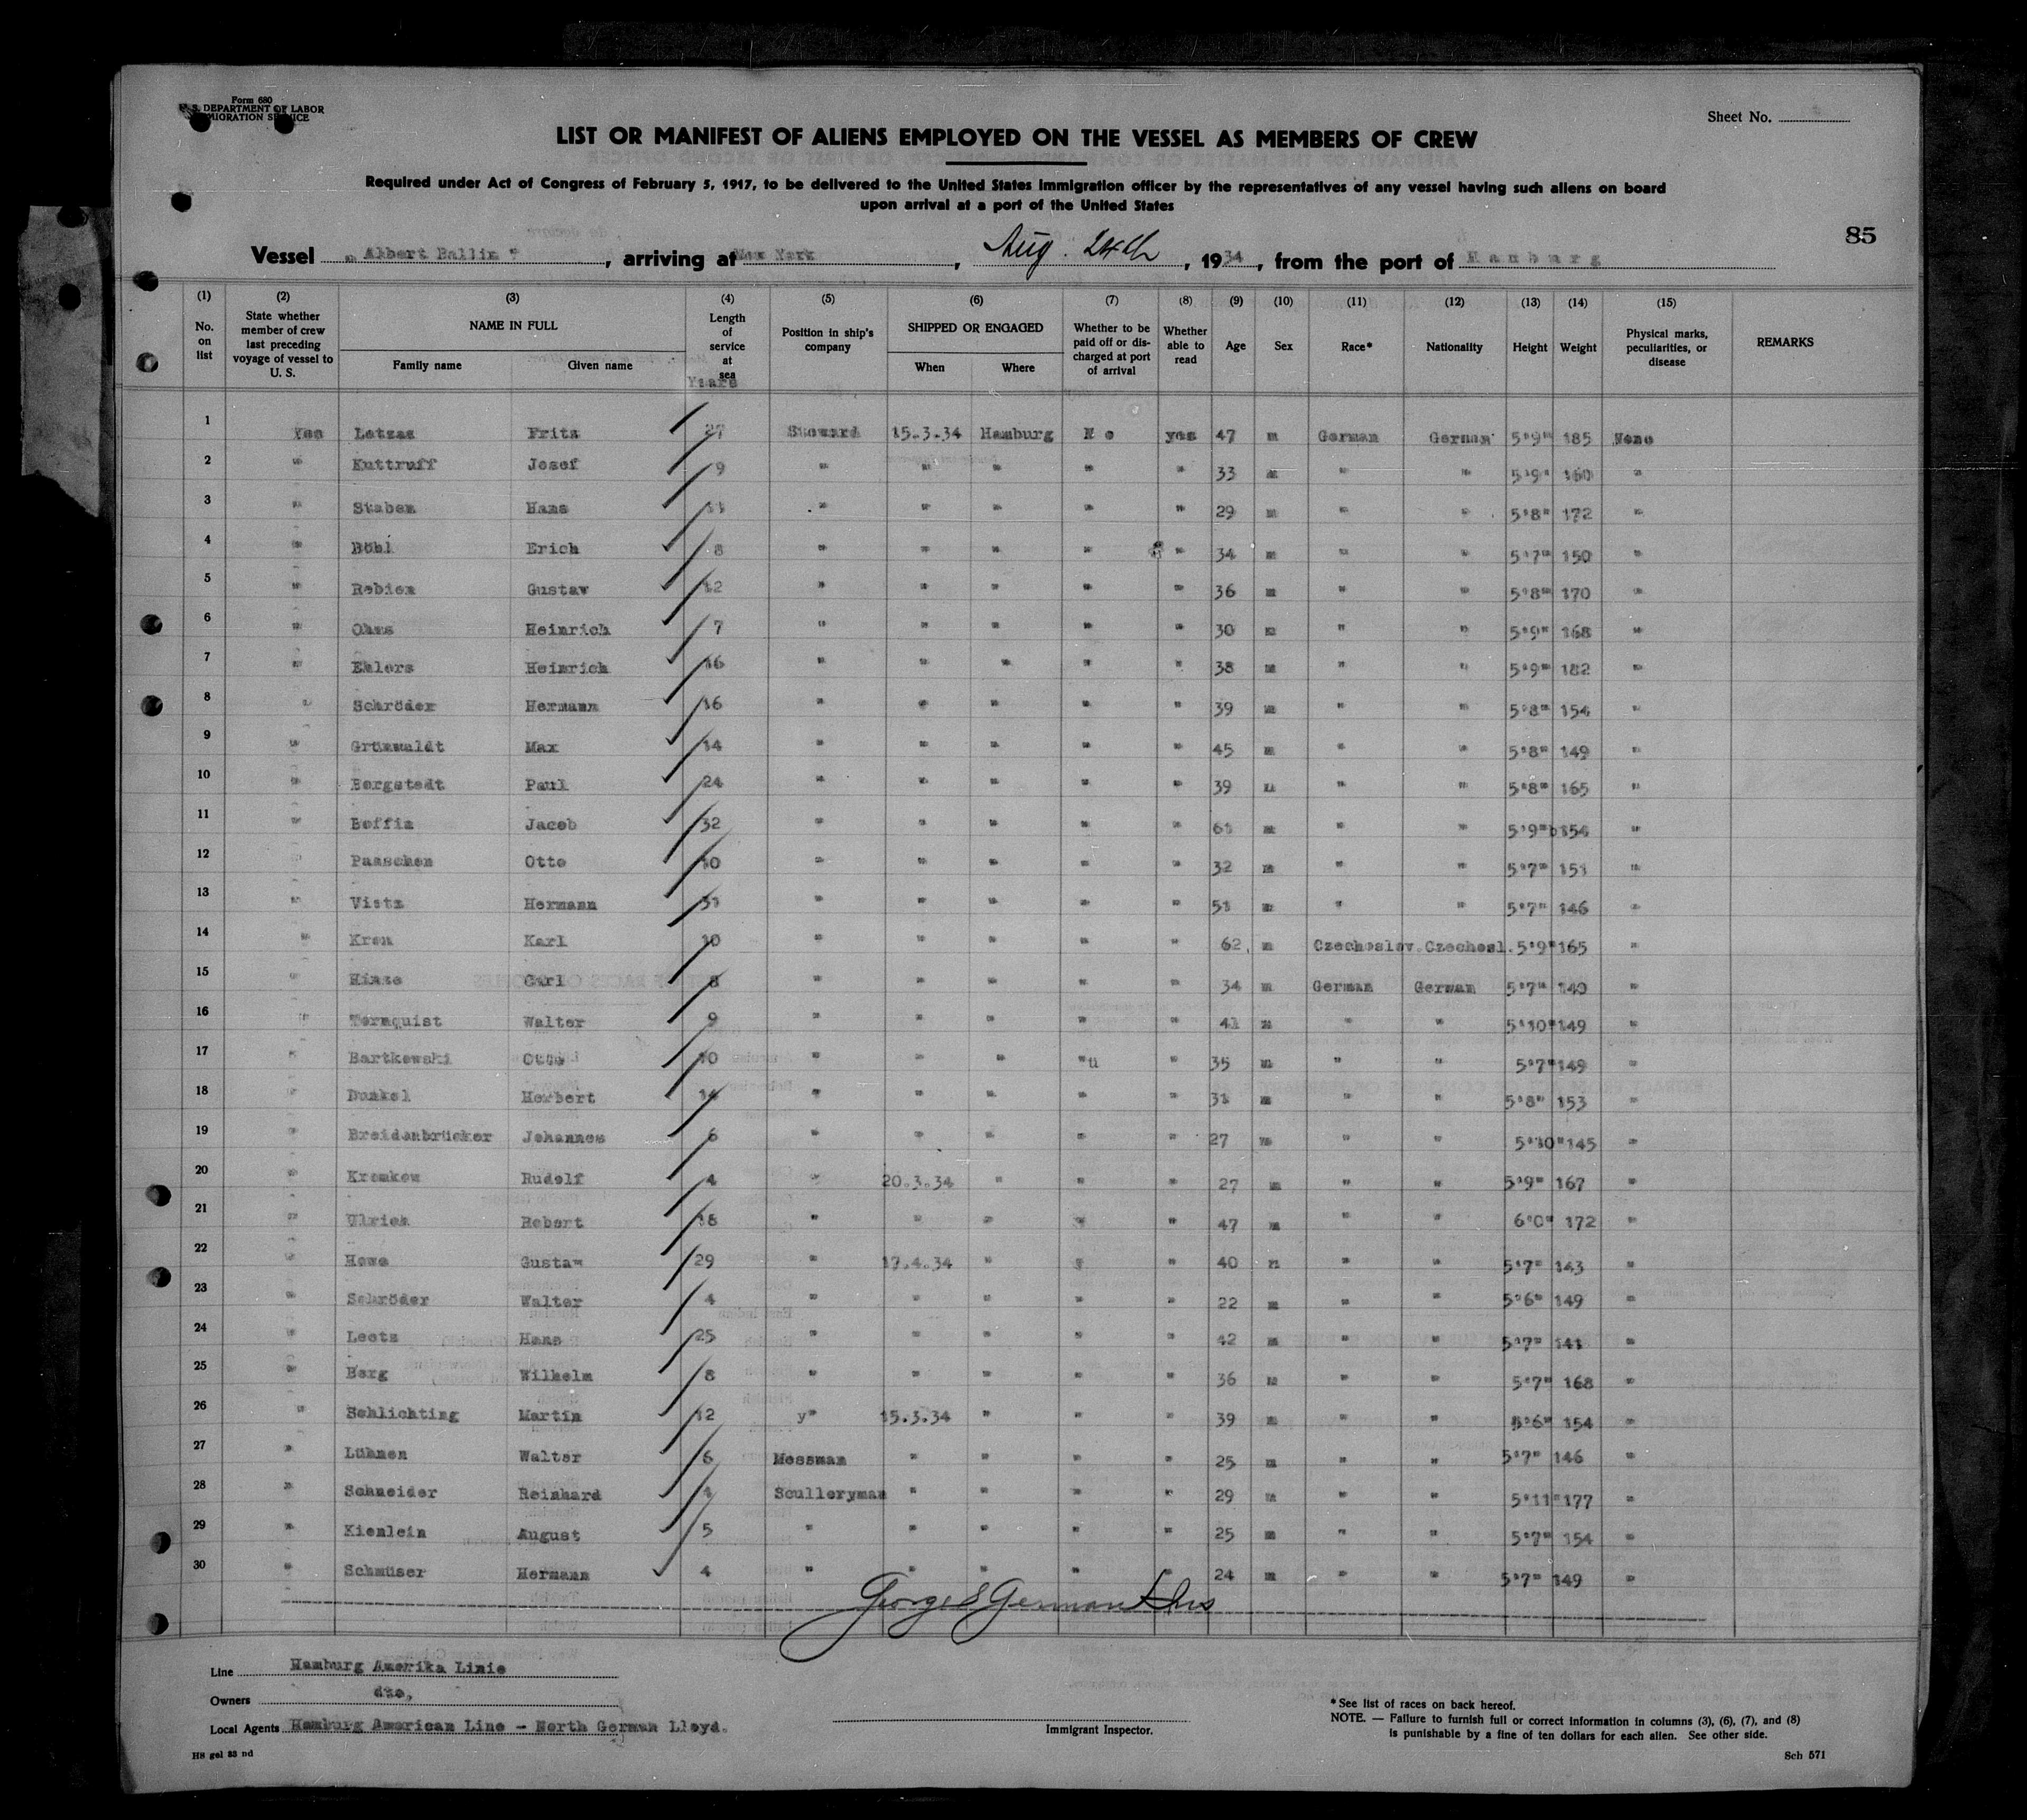 Form 680
U. S. DEPARTMENT OF LABOR
IMMIGRATION SERVICE
Sheet No.
LIST OR MANIFEST OF ALIENS EMPLOYED ON THE VESSEL AS MEMBERS OF CREW
Required under Act of Congress of February 5, 1917, to be delivered to the United States immigration officer by the representatives of any vessel having such aliens on board
upon arrival at a port of the United States
85
Vessel „ Albert Ballin " , arriving at New York , Aug. 24th , 1934 , from the port of Hamburg
(1) No. on list (2) State whether member of crew last preceding voyage of vessel to U. S. (3) NAME IN FULL Family name Given name (4) Length of service at sea Years (5) Position in ship's company (6) SHIPPED OR ENGAGED When Where (7) Whether to be paid off or discharged at port of arrival (8) Whether able to read (9) Age (10) Sex (11) Race* (12) Nationality (13) Height (14) Weight (15) Physical marks, peculiarities, or disease REMARKS
1 Yes Letzas Fritz 27 Steward 15.3.34 Hamburg No yes 47 m German German 5'9" 185 None
2 " Kuttruff Josef 9 " " " " " 33 m " " 5'9" 160 "
3 " Staben Hans 11 " " " " " 29 m " " 5'8" 172 "
4 " Böhl Erich 8 " " " " " 34 m " " 5'7" 150 "
5 " Rebien Gustav 12 " " " " " 36 m " " 5'8" 170 "
6 " Ohms Heinrich 7 " " " " " 30 m " " 5'9" 168 "
7 " Ehlers Heinrich 16 " " " " " 38 m " " 5'9" 182 "
8 " Schröder Hermann 16 " " " " " 39 m " " 5'8" 154 "
9 " Grünwaldt Max 14 " " " " " 45 m " " 5'8" 149 "
10 " Bergstedt Paul 24 " " " " " 39 m " " 5'8" 165 "
11 " Boffin Jacob 32 " " " " " 61 m " " 5'9" 154 "
12 " Paaschen Otto 10 " " " " " 32 m " " 5'7" 151 "
13 " Vietz Hermann 31 " " " " " 51 m " " 5'7" 146 "
14 " Kren Karl 10 " " " " " 62 m Czechoslav. Czechosl. 5'9" 165 "
15 " Hinze Carl 8 " " " " " 34 m German German 5'7" 140 "
16 " Tornquist Walter 9 " " " " " 41 m " " 5'10" 149 "
17 " Bartkowski Otto 10 " " " "ü " 35 m " " 5'7" 149 "
18 " Dunkel Herbert 14 " " " " " 31 m " " 5'8" 153 "
19 " Breidenbrücker Johannes 6 " " " " " 27 m " " 5'10" 145 "
20 " Kremkow Rudolf 4 " 20.3.34 " " " 27 m " " 5'9" 167 "
21 " Ulrich Robert 16 " " " " " 47 m " " 6'0" 172 "
22 " Howe Gustav 29 " 17.4.34 " " " 40 m " " 5'7" 143 "
23 " Schröder Walter 4 " " " " " 22 m " " 5'6" 149 "
24 " Leetz Hans 25 " " " " " 42 m " " 5'7" 141 "
25 " Berg Wilhelm 8 " " " " " 36 m " " 5'7" 168 "
26 " Schlichting Martin 12 y" 15.3.34 " " " 39 m " " 5'6" 154 "
27 " Lühnen Walter 6 Messman " " " " 25 m " " 5'7" 146 "
28 " Schneider Reinhard 4 Sculleryman " " " " 29 m " " 5'11" 177 "
29 " Kienlein August 5 " " " " " 25 m " " 5'7" 154 "
30 " Schmüser Hermann 4 " " " " " 24 m " " 5'7" 149 "
George S German
Line Hamburg Amerika Linie
Owners dto,
Local Agents Hamburg American Line - North German Lloyd.
Immigrant Inspector.
*See list of races on back hereof.
NOTE. — Failure to furnish full or correct information in columns (3), (6), (7), and (8)
is punishable by a fine of ten dollars for each alien. See other side.
H8 gel 33 nd
Sch 571